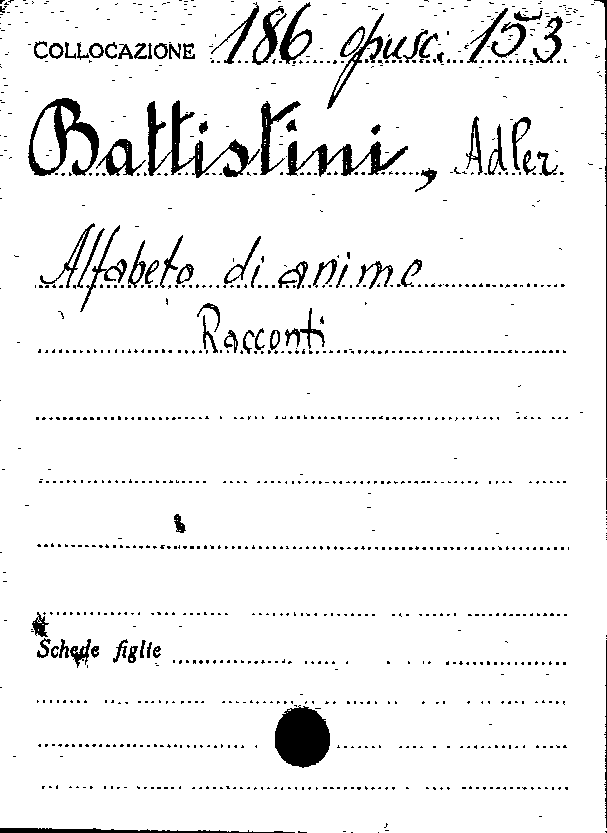 COLLOCAZIONE 186 opusc. 153
Battistini, Adler
Alfabeto di anime
Racconti
Schede figlie